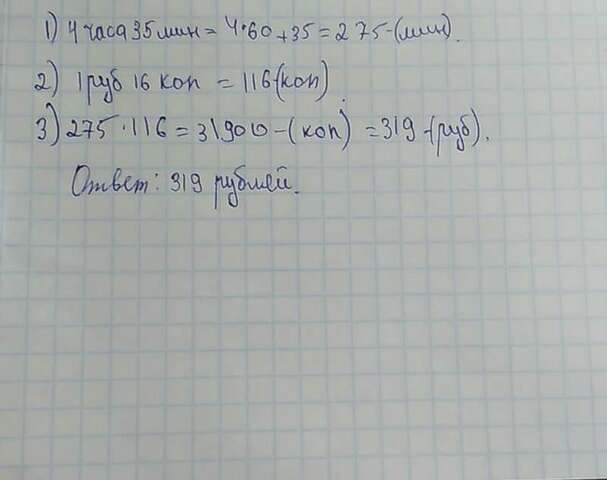 1) 4 часа 35 мин = 4·60+35 = 275-(мин).
2) 1 руб 16 коп = 116-(коп).
3) 275·116 = 31900-(коп) = 319-(руб).
Ответ: 319 рублей.